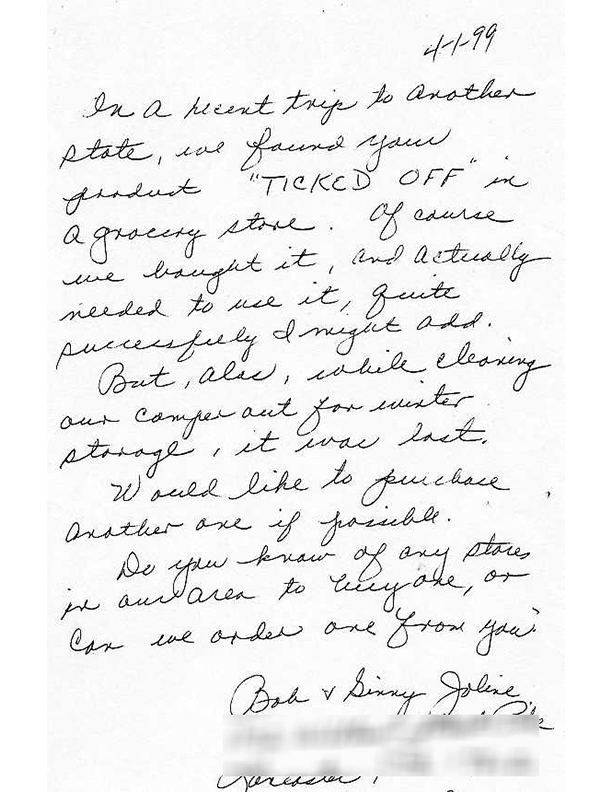 4-1-99
In a recent trip to another
state, we found your
product "TICKED OFF" in
a grocery store. Of course
we bought it, and actually
needed to use it, quite
successfully I might add.
But, alas, while cleaning
our camper out for winter
storage, it was lost.
Would like to purchase
another one if possible.
Do you know of any stores
in our area to buy one, or
can we order one from you?
Bob & Ginny Joline
Lancaster,